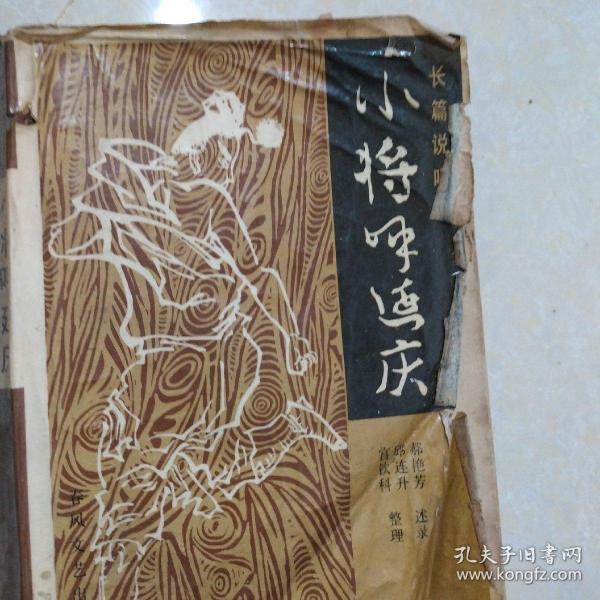 长篇说
小将呼延庆
郝艳芳 述录
邱连升
宫钦科 整理
春风文艺出
孔夫子旧书网
www.kongfz.com